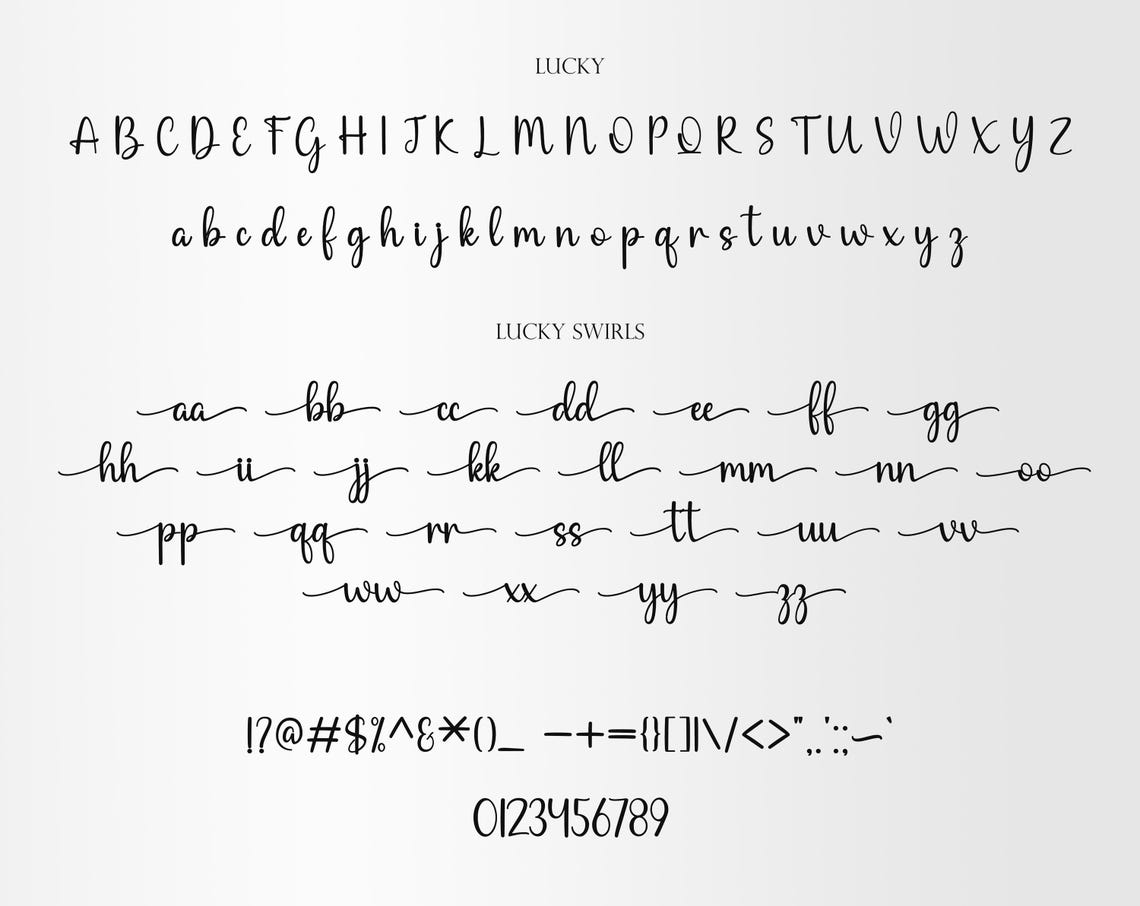 LUCKY
A B C D E F G H I J K L M N O P Q R S T U V W X Y Z
a b c d e f g h i j k l m n o p q r s t u v w x y z
LUCKY SWIRLS
aa bb cc dd ee ff gg
hh ii jj kk ll mm nn oo
pp qq rr ss tt uu vv
ww xx yy zz
!?@#$%^&*()_ –+={}[]|\/<>",.':;~`
0123456789